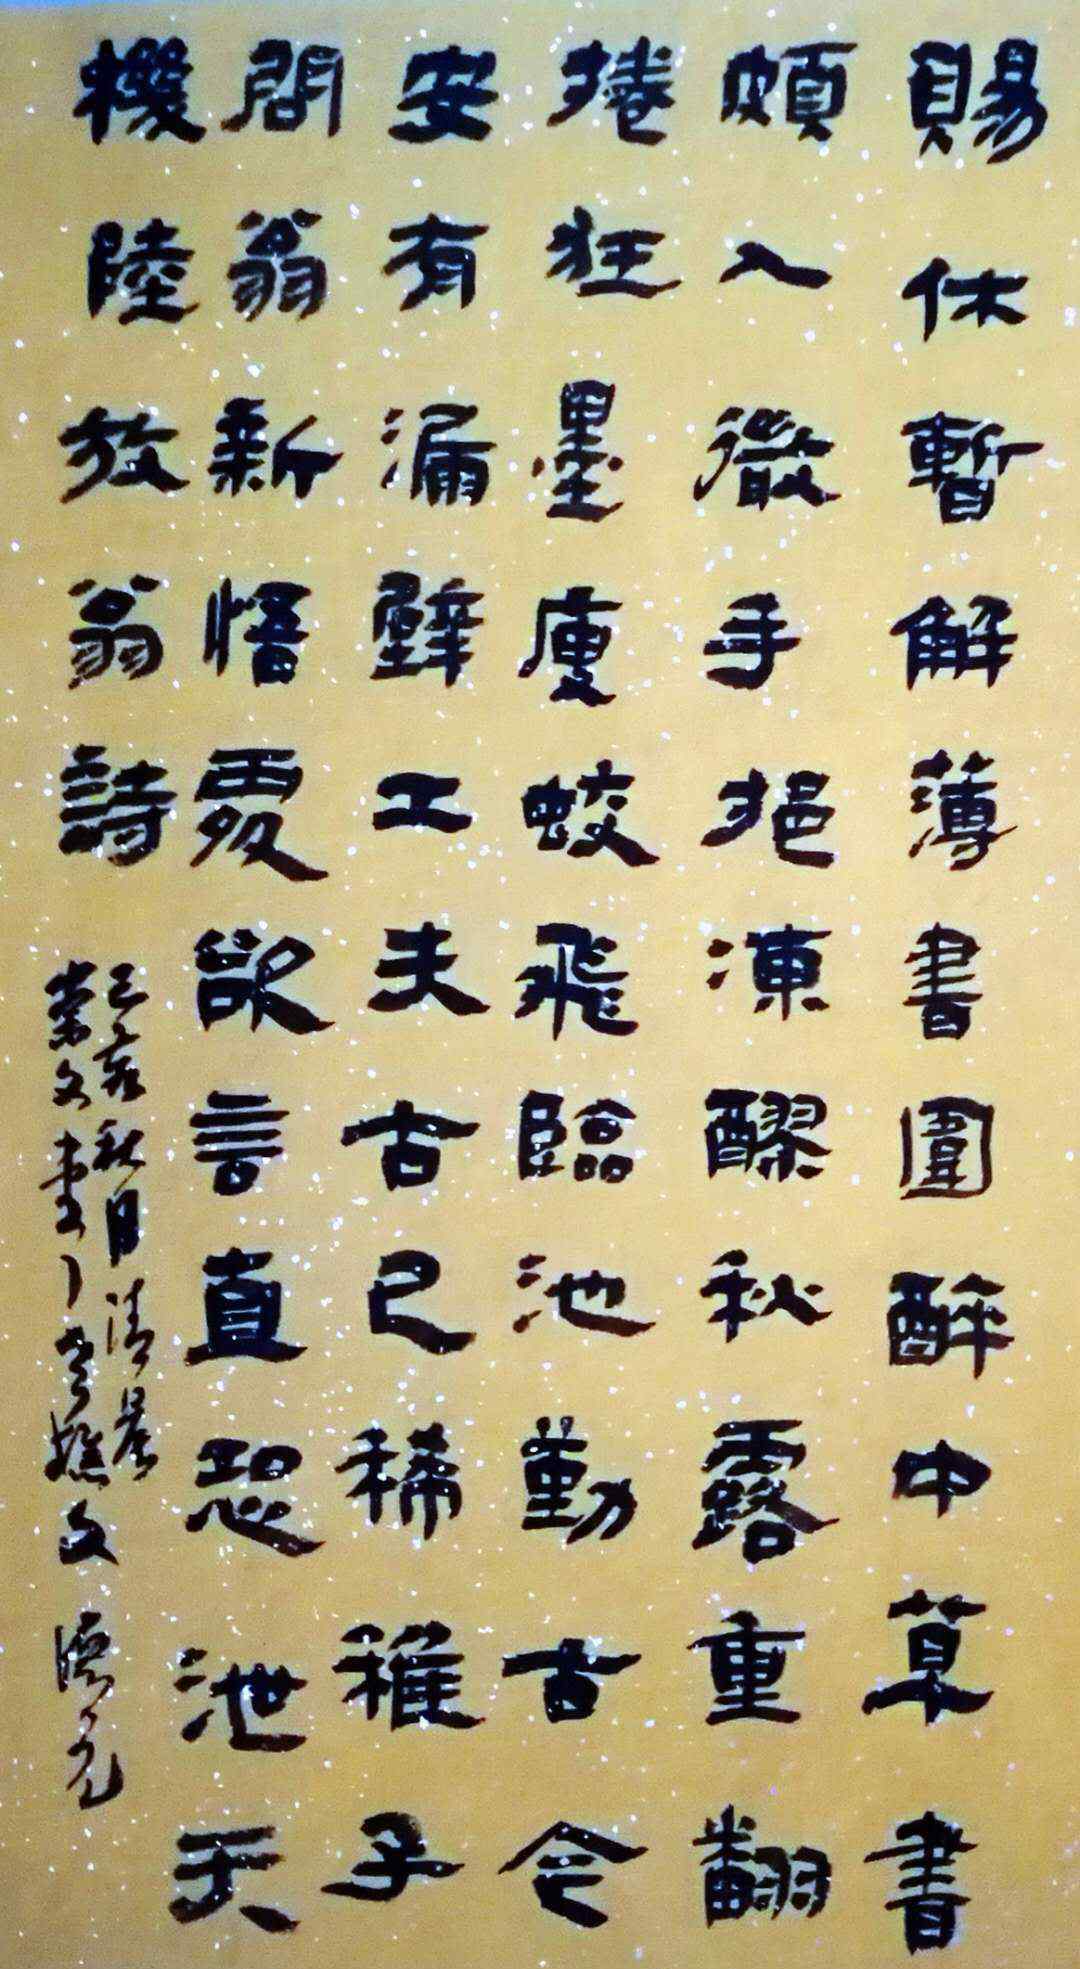 賜休暫解薄書圍醉中草書
頗入微手挹凍醪秋露重翻
捲狂墨廋蛟飛臨池勤古今
安有漏壁工夫古已稀稚子
問翁新悟處欲言直恐泄天
機陸放翁詩
己亥秋月清晨
崇文書